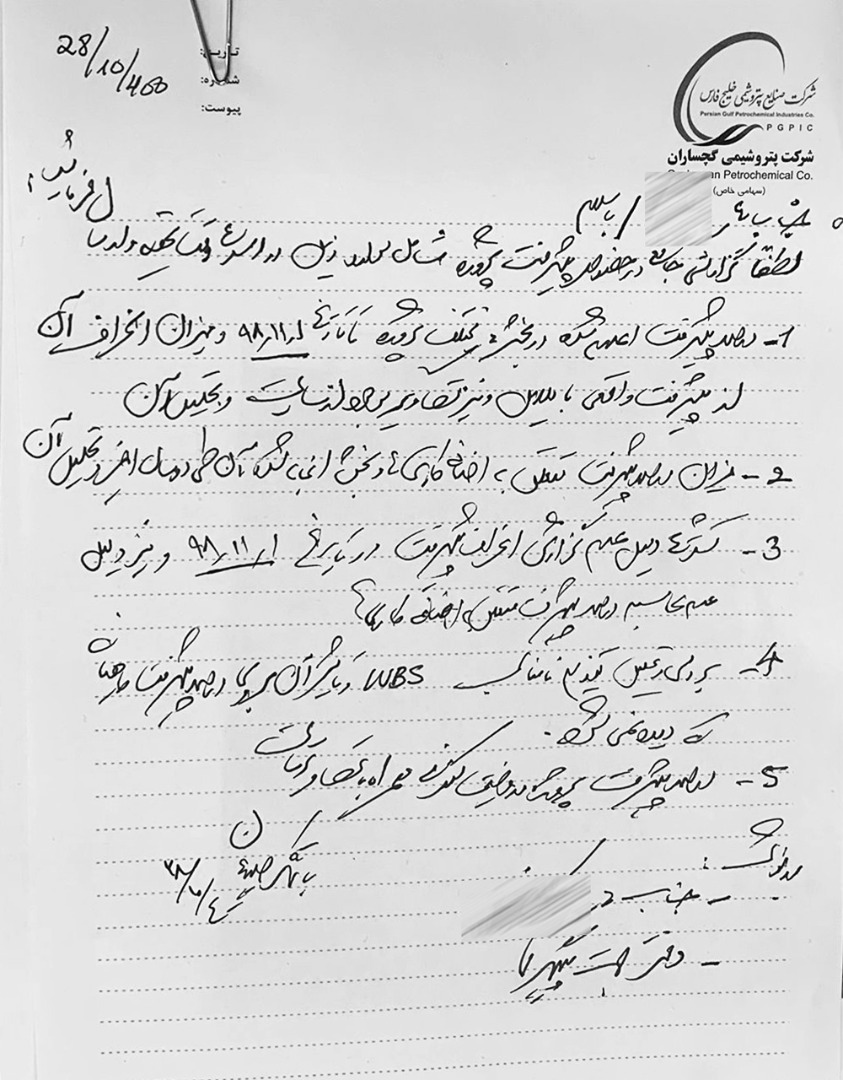 28/10/400
تاریخ:
شماره:
پیوست:
شرکت صنایع پتروشیمی خلیج فارس
Persian Gulf Petrochemical Industries Co.
PGPIC
شرکت پتروشیمی گچساران
an Petrochemical Co.
(سهامی خاص)
جناب / با سلام
لطفاً گزارشی جامع در خصوص پیشرفت پروژه شامل موارد ذیل در اسرع وقت تهیه و ارسال فرمایید:
1- درصد پیشرفت اعلام شده در بخشهای مختلف پروژه تا تاریخ 98/11/1 و میزان انحراف آن
از پیشرفت واقعی با دلایل و نیز تصاویر مربوطه از سایت و تحلیل آن
2- میزان درصد پیشرفت متعلق به اضافه کاری ها و بخش انجام شده آن طی دو سال اخیر و تحلیل آن
3- دلیل عدم گزارش انحراف پیشرفت در تاریخ 98/11/1 و نیز دلیل
عدم محاسبه درصد پیشرفت متعلق به اضافه کاریها
4- بررسی و تحلیل توزیع نامناسب WBS و تاثیر آن بر روی درصد پیشرفت ماهیانه
که دیده نمی شود.
5- درصد پیشرفت پروژه در وضعیت کنونی همراه با تصاویر سایت
با تشکر
رونوشت:
- جناب
- دفتر